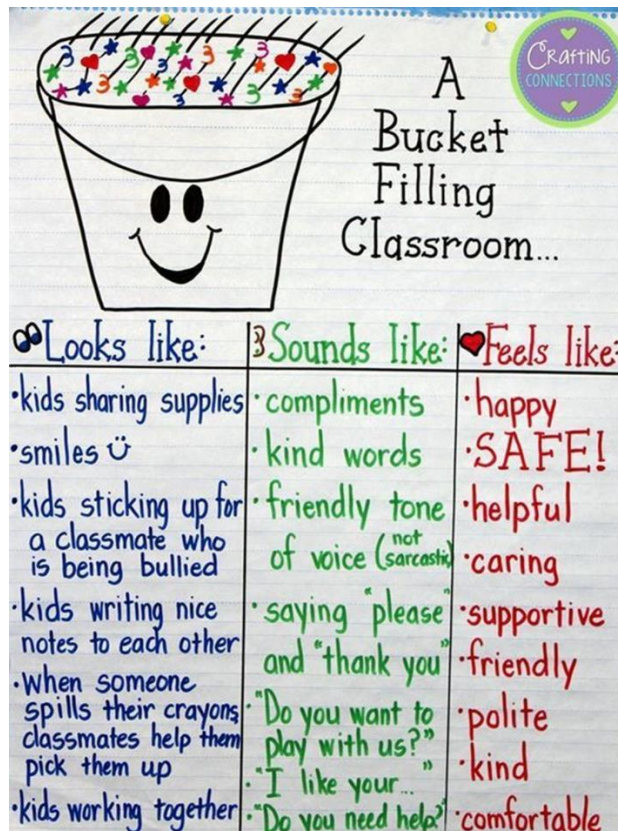 Crafting
CONNECTIONS
A
Bucket
Filling
Classroom...
Looks like:
•kids sharing supplies
•smiles
•kids sticking up for
a classmate who
is being bullied
•kids writing nice
notes to each other
•When someone
spills their crayons,
classmates help them
pick them up
•kids working together
Sounds like:
•compliments
•kind words
•friendly tone
of voice (not
sarcastic)
•saying "please"
and "thank you"
•"Do you want to
play with us?"
•"I like your..."
•"Do you need help?"
Feels like:
•happy
•SAFE!
•helpful
•caring
•supportive
•friendly
•polite
•kind
•comfortable